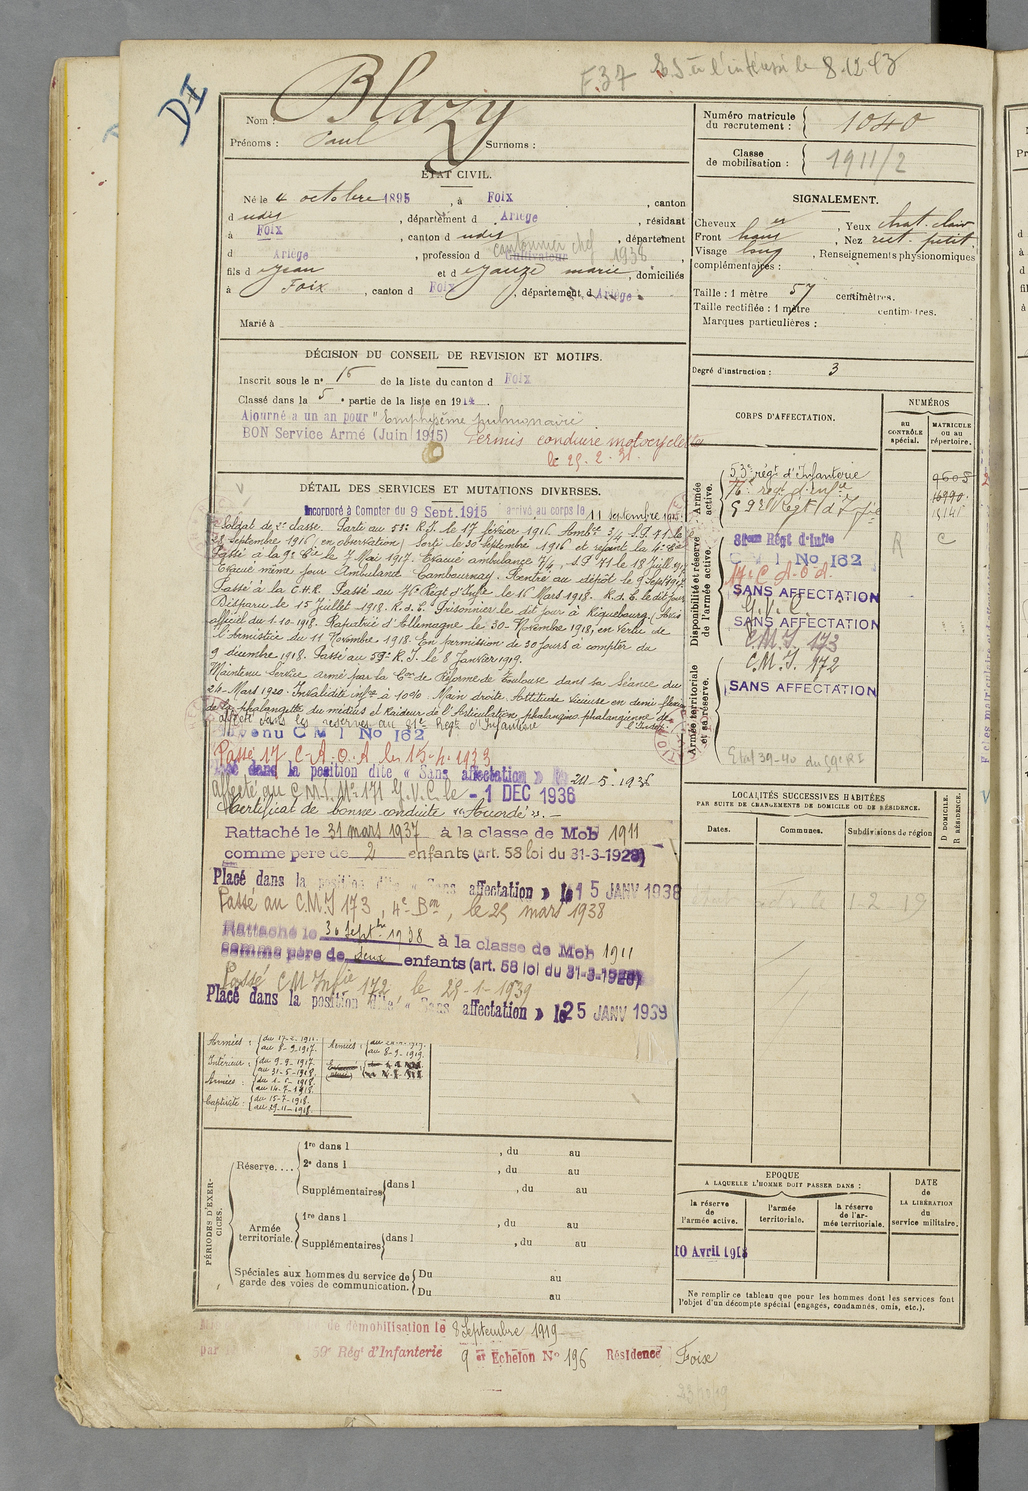 DI
F.37
à l'intérieur le 8.12.43
Nom : Blazy
Prénoms : Paul Surnoms :
ÉTAT CIVIL.
Né le 4 octobre 1895, à Foix, canton
d udes, département d Ariège, résidant
à Foix, canton d udes, département
d Ariège, profession d Cultivateur cantonnier chef 1938,
fils d Jean et d Gauzé marie, domiciliés
à Foix, canton d Foix, département d Ariège
Marié à
DÉCISION DU CONSEIL DE REVISION ET MOTIFS.
Inscrit sous le n° 15 de la liste du canton d Foix
Classé dans la 5e partie de la liste en 1914.
Ajourné a un an pour "Emphysème pulmonaire"
BON Service Armé (Juin 1915) Permis conduire motocyclettes
le 25.2.31.
DÉTAIL DES SERVICES ET MUTATIONS DIVERSES.
Incorporé à Compter du 9 Sept.1915 arrivé au corps le 11 septembre 1915
Soldat de 2e classe. Parti au 53e R.I. le 17 février 1916. Amb. 3/4 S.P. 11 le
28 Septembre 1916 (en observation) Sorti le 30 septembre 1916 et rejoint la 4e Cie
Passé à la 9e Cie le 7 Mai 1917. Evacué ambulance 7/4, S.P. 11 le 18 Juill 917
Evacué même jour Ambulance Cambournay. Rentré au dépôt le 9 Sept 1917.
Passé à la C.H.R. Passé au 76e Régt d'Infie le 16 Mars 1918. R.d.E. le dit jour
Disparu le 15 Juillet 1918. R.d.E. Prisonnier le dit jour à Riquebourg. (Avis
officiel du 1.10.1918. Rapatrié d'Allemagne le 30 Novembre 1918, en vertu de
l'Armistice du 11 Novembre 1918. En permission de 30 jours à compter du
9 décembre 1918. Passé au 59e R.I. le 8 Janvier 1919.
Maintenu Service armé par la Con de Réforme de Toulouse dans sa Séance du
24 Mars 1920. Invalidité infre à 10%. Main droite Attitude vicieuse en demi flexion
de la phalangette du médius et Raideur de l'Articulation phalangino phalangienne de l'Index.
affecté dans les réserves au 81e Régt d'Infanterie
Devenu C M I No 162
Passé 17 C.A.O.A le 15.4.1933
Placé dans la position dite « Sans affectation » le 20-5-1936
affecté au C.M.I. No 171 G.V.C. le - 1 DEC 1936
Certificat de bonne conduite "Accordé". -
Rattaché le 31 mars 1937 à la classe de Mob 1911
comme père de 2 enfants (art. 58 loi du 31-3-1928)
Placé dans la position dite « Sans affectation » le 15 JANV 1938
Passé au C.M.I 173, 4e Bon, le 25 mars 1938
Rattaché le 30 Septbre 1938 à la classe de Mob 1911
comme père de deux enfants (art. 58 loi du 31-3-1928)
Passé CM Infie 172 le 25-1-1939
Placé dans la position dite « Sans affectation » le 25 JANV 1939
Armées : du 17-2-1911. au 8-9-1917. Armées :
au 8-9-1919.
Intérieur : du 9-9-1917. au 31-5-1918.
Armées : du 1-6-1918. au 14-7-1918.
Captivité : du 15-7-1918. au 29-11-1918.
PÉRIODES D'EXERCICES.
Réserve.... 1re dans l , du au
2e dans l , du au
Supplémentaires dans l , du au
Armée territoriale. 1re dans l , du au
Supplémentaires dans l , du au
Spéciales aux hommes du service de garde des voies de communication. Du au
Du au
de démobilisation le 8 Septembre 1919
par 59e Régt d'Infanterie 9 me Echelon No 196 Résidence Foix
Numéro matricule du recrutement : 1040
Classe de mobilisation : 1911/2
SIGNALEMENT.
Cheveux , Yeux chat. clair
Front haut, Nez rect. petit
Visage long, Renseignements physionomiques
complémentaires :
Taille : 1 mètre 57 centimètres.
Taille rectifiée : 1 mètre centimètres.
Marques particulières :
Degré d'instruction : 3
CORPS D'AFFECTATION.
NUMÉROS
au CONTRÔLE spécial.
MATRICULE ou au répertoire.
Armée active.
53e régt d'Infanterie 9605
76e régt d'Infie
59e Régt d'Infie
Disponibilité et réserve de l'armée active.
81eme Régt d'Infie R C
C M I No 162
17e C.A.O.A.
SANS AFFECTATION
G.V.C.
SANS AFFECTATION
C.M.I. 173
Armée territoriale et sa réserve.
C.M.I. 172
SANS AFFECTATION
Etat 39-40 du 59e RI
LOCALITÉS SUCCESSIVES HABITÉES
PAR SUITE DE CHANGEMENTS DE DOMICILE OU DE RÉSIDENCE.
Dates. Communes. Subdivisions de région D DOMICILE. R RÉSIDENCE.
1-2-19
EPOQUE
A LAQUELLE L'HOMME DOIT PASSER DANS :
DATE de LA LIBÉRATION du service militaire.
la réserve de l'armée active.
l'armée territoriale.
la réserve de l'armée territoriale.
10 Avril 1918
Ne remplir ce tableau que pour les hommes dont les services font
l'objet d'un décompte spécial (engagés, condamnés, omis, etc.).